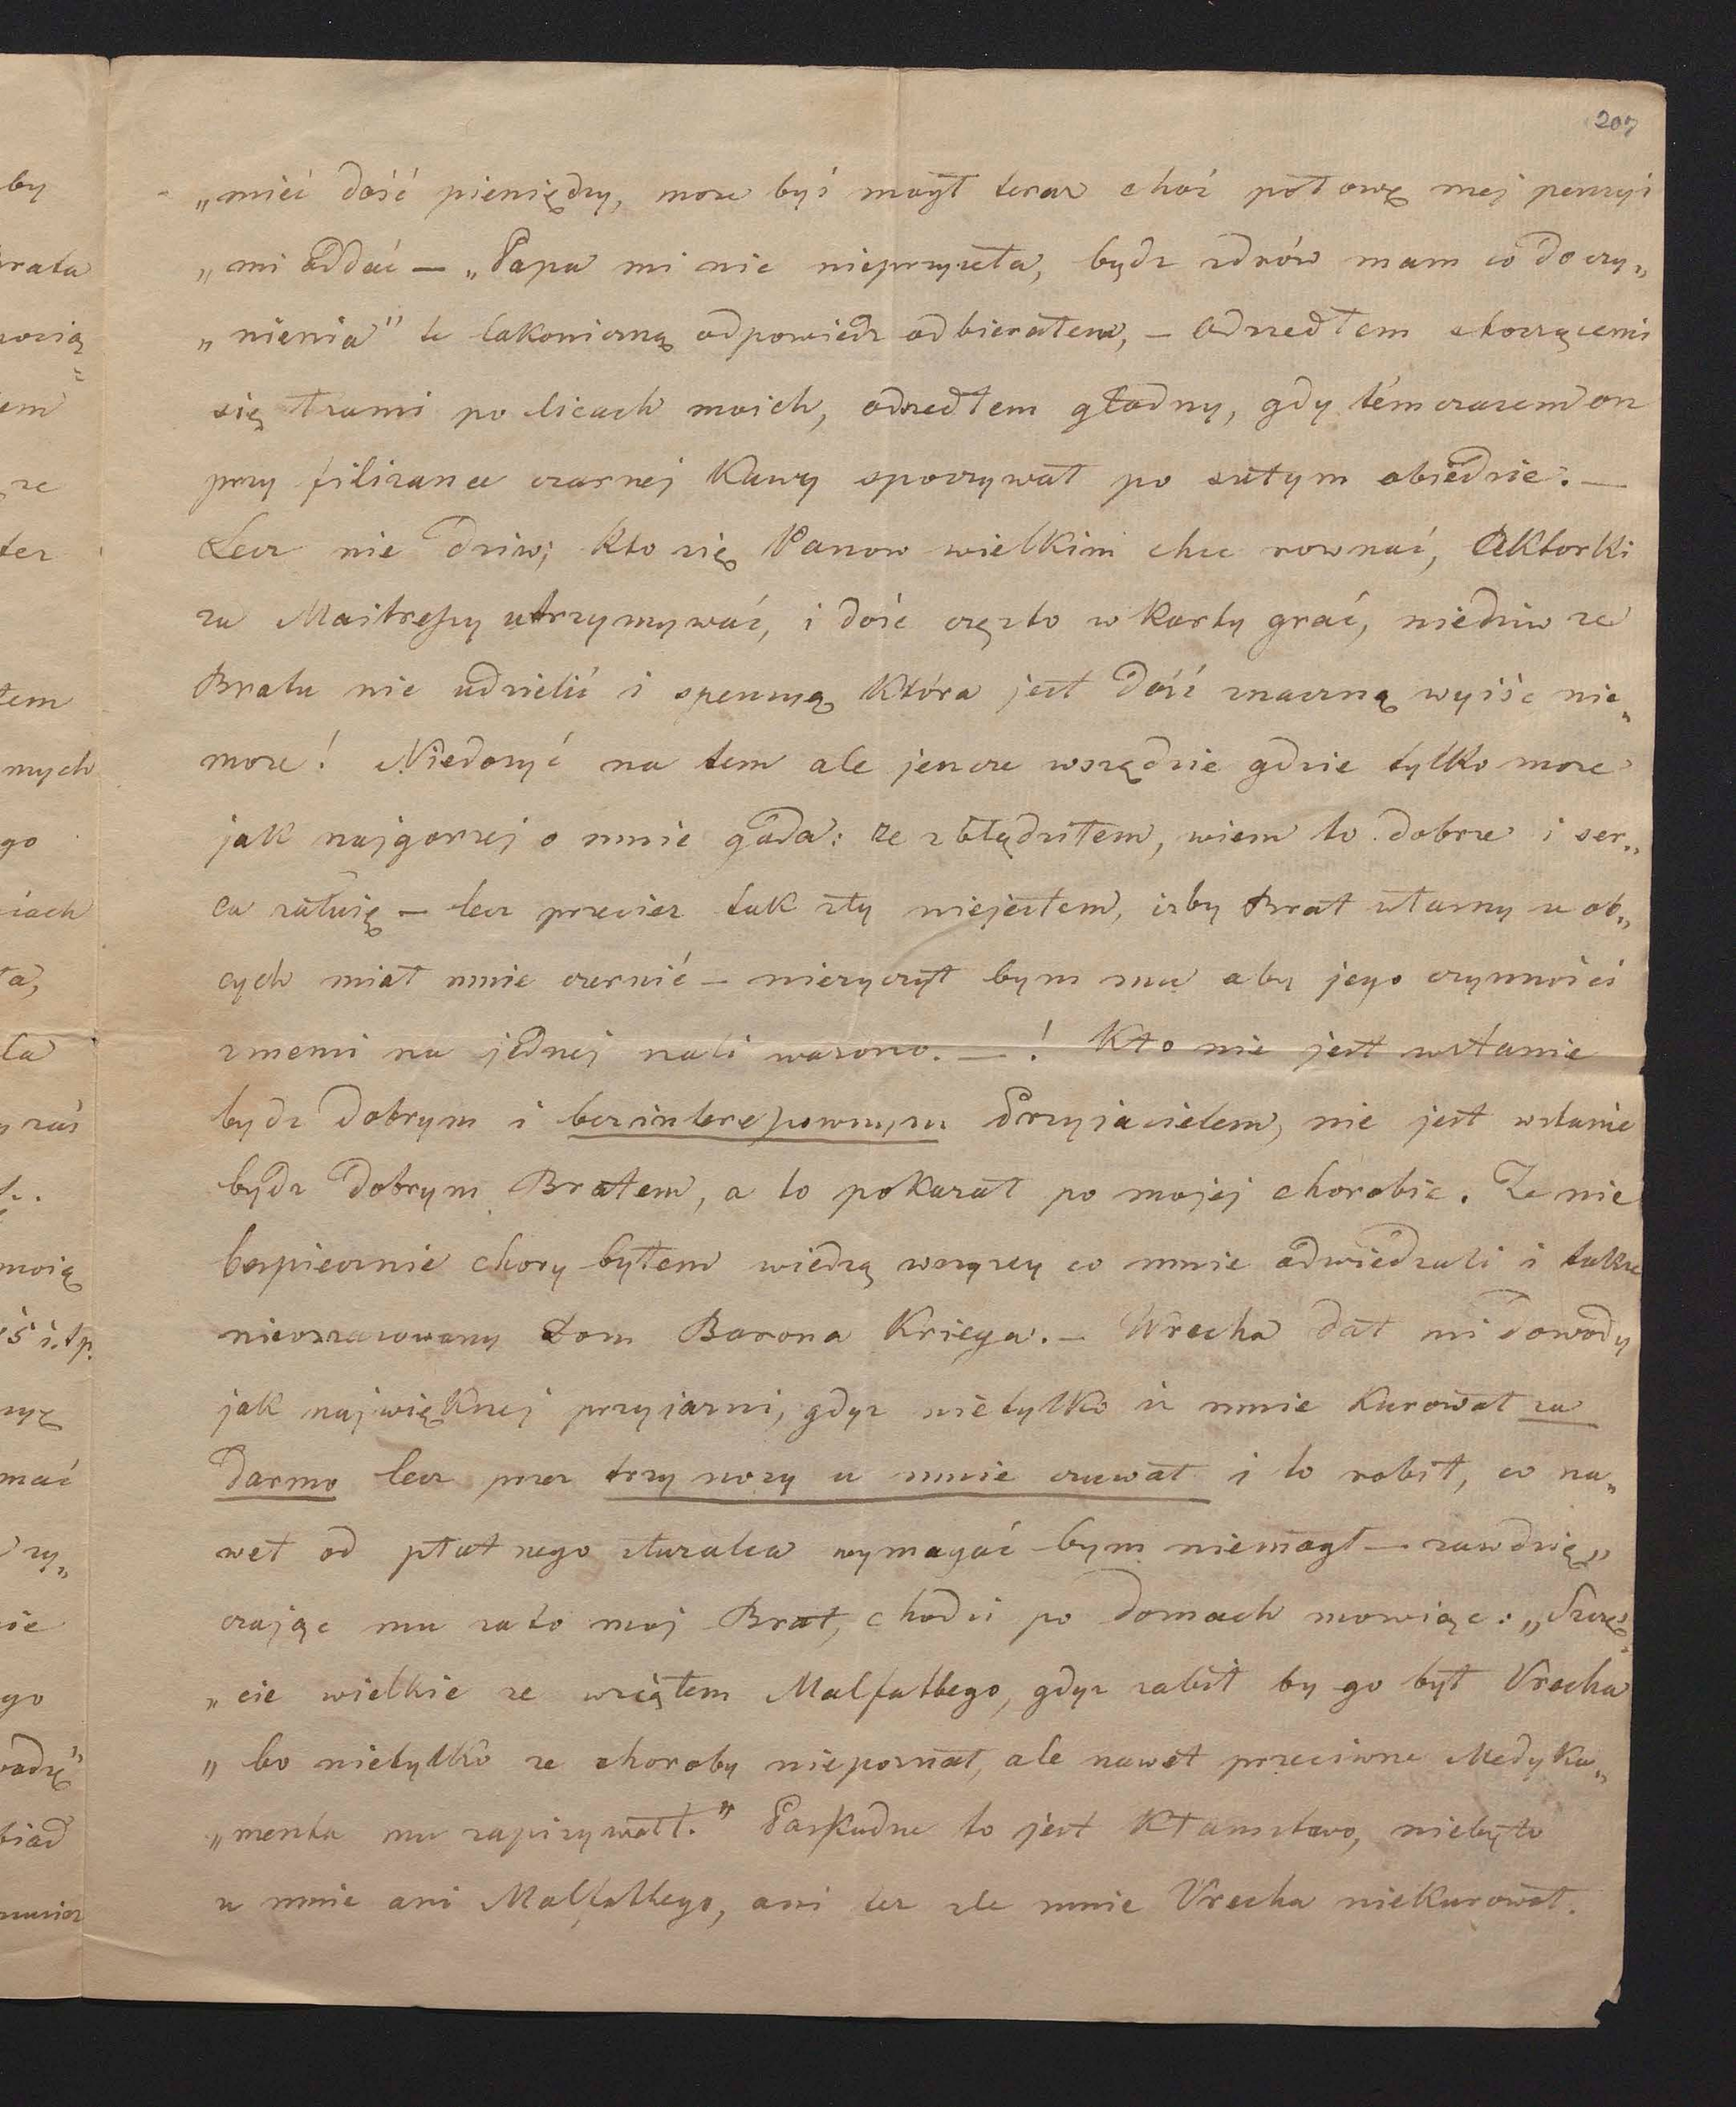 207
„mieć dość pieniędzy, moze byś mógł teraz choć połowę mej penzyi
„mi oddać — „Papa mi nic nieprzysła, bydz zdrów mam co do czy„
„nienia" te lakoniczną odpowiedz odbierałem, — odszedłem stoczącemi
się łzami po licach moich, odszedłem głodny, gdy témczasem on
przy filizance czarnej Kawy spoczywał po sutym obiedzie. —
Lecz nie dziw, Kto się Panom wielkim chce rownać, Aktorki
za Maitressy utrzymywać, i dość często w karty grać, niedziw ze
Bratu nic udzielić i spenzyą Która jest dość znaczną wyiśc nie„
moze! Niedosyć na tem ale jeszcze wszędzie gdzie tylko moze
jak najgorzej o mnie gada: ze zbłądziłem, wiem to dobrze i ser„
ca załuię — lecz przeciez tak zły niejestem, izby Brat własny u ob„
cych miał mnie czernić — nieżyczył bym mu aby jego czynności
zmemi na jednej szali wazono. — ! Kto nie jest wstanie
bydz dobrym i bezinteressownym Przyjacielem, nie jest wstanie
bydz dobrym Bratem, a to pokazał po mojej chorobie. Ze nie
bezpiecznie chory byłem wiedzą wszyscy co mnie odwiedzali i takze
nieoszacowany Dom Barona Kriega. — Wrecha dał mi dowody
jak największej przyjazni, gdyz nietylko iz mnie Kurował za
darmo lecz przez trzy nocy u mnie czuwał i to robił, co na„
wet od płatnego sługalca wymagać bym niemogł — zawdzię„
czając mu zato moj Brat, chodzi po domach mowiąc: „Szczęś„
„cie wielkie ze wziąłem Malfattego, gdyz zabił by go był Vrecha
„bo nietylko ze choroby niepoznał, ale nawet przeciwne Medyka„
„menta mu zapisywał." Paskudne to jest Kłamstwo, niebyło
u mnie ani Malfattego, ani tez zle mnie Vrecha niekurował.
by
rata
em
ze
tez
tem
mych
go
ciach
ła,
la
zaś
moią
i.t.p.
mać
go